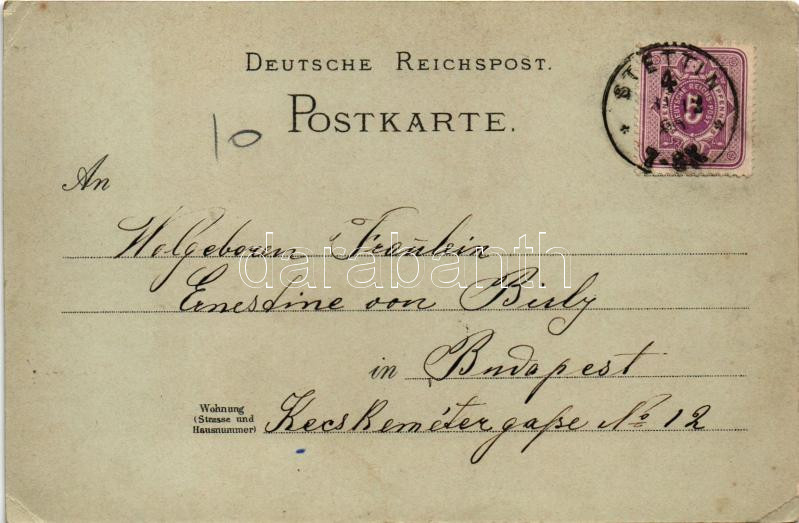 DEUTSCHE REICHSPOST.
POSTKARTE.
STETTIN
4
5
10
An
Wolgeboren Fräulein
darabanth
Ernestine von Bisly
in Budapest
Wohnung
(Strasse und
Hausnummer)
Kecskemétergaße No 12